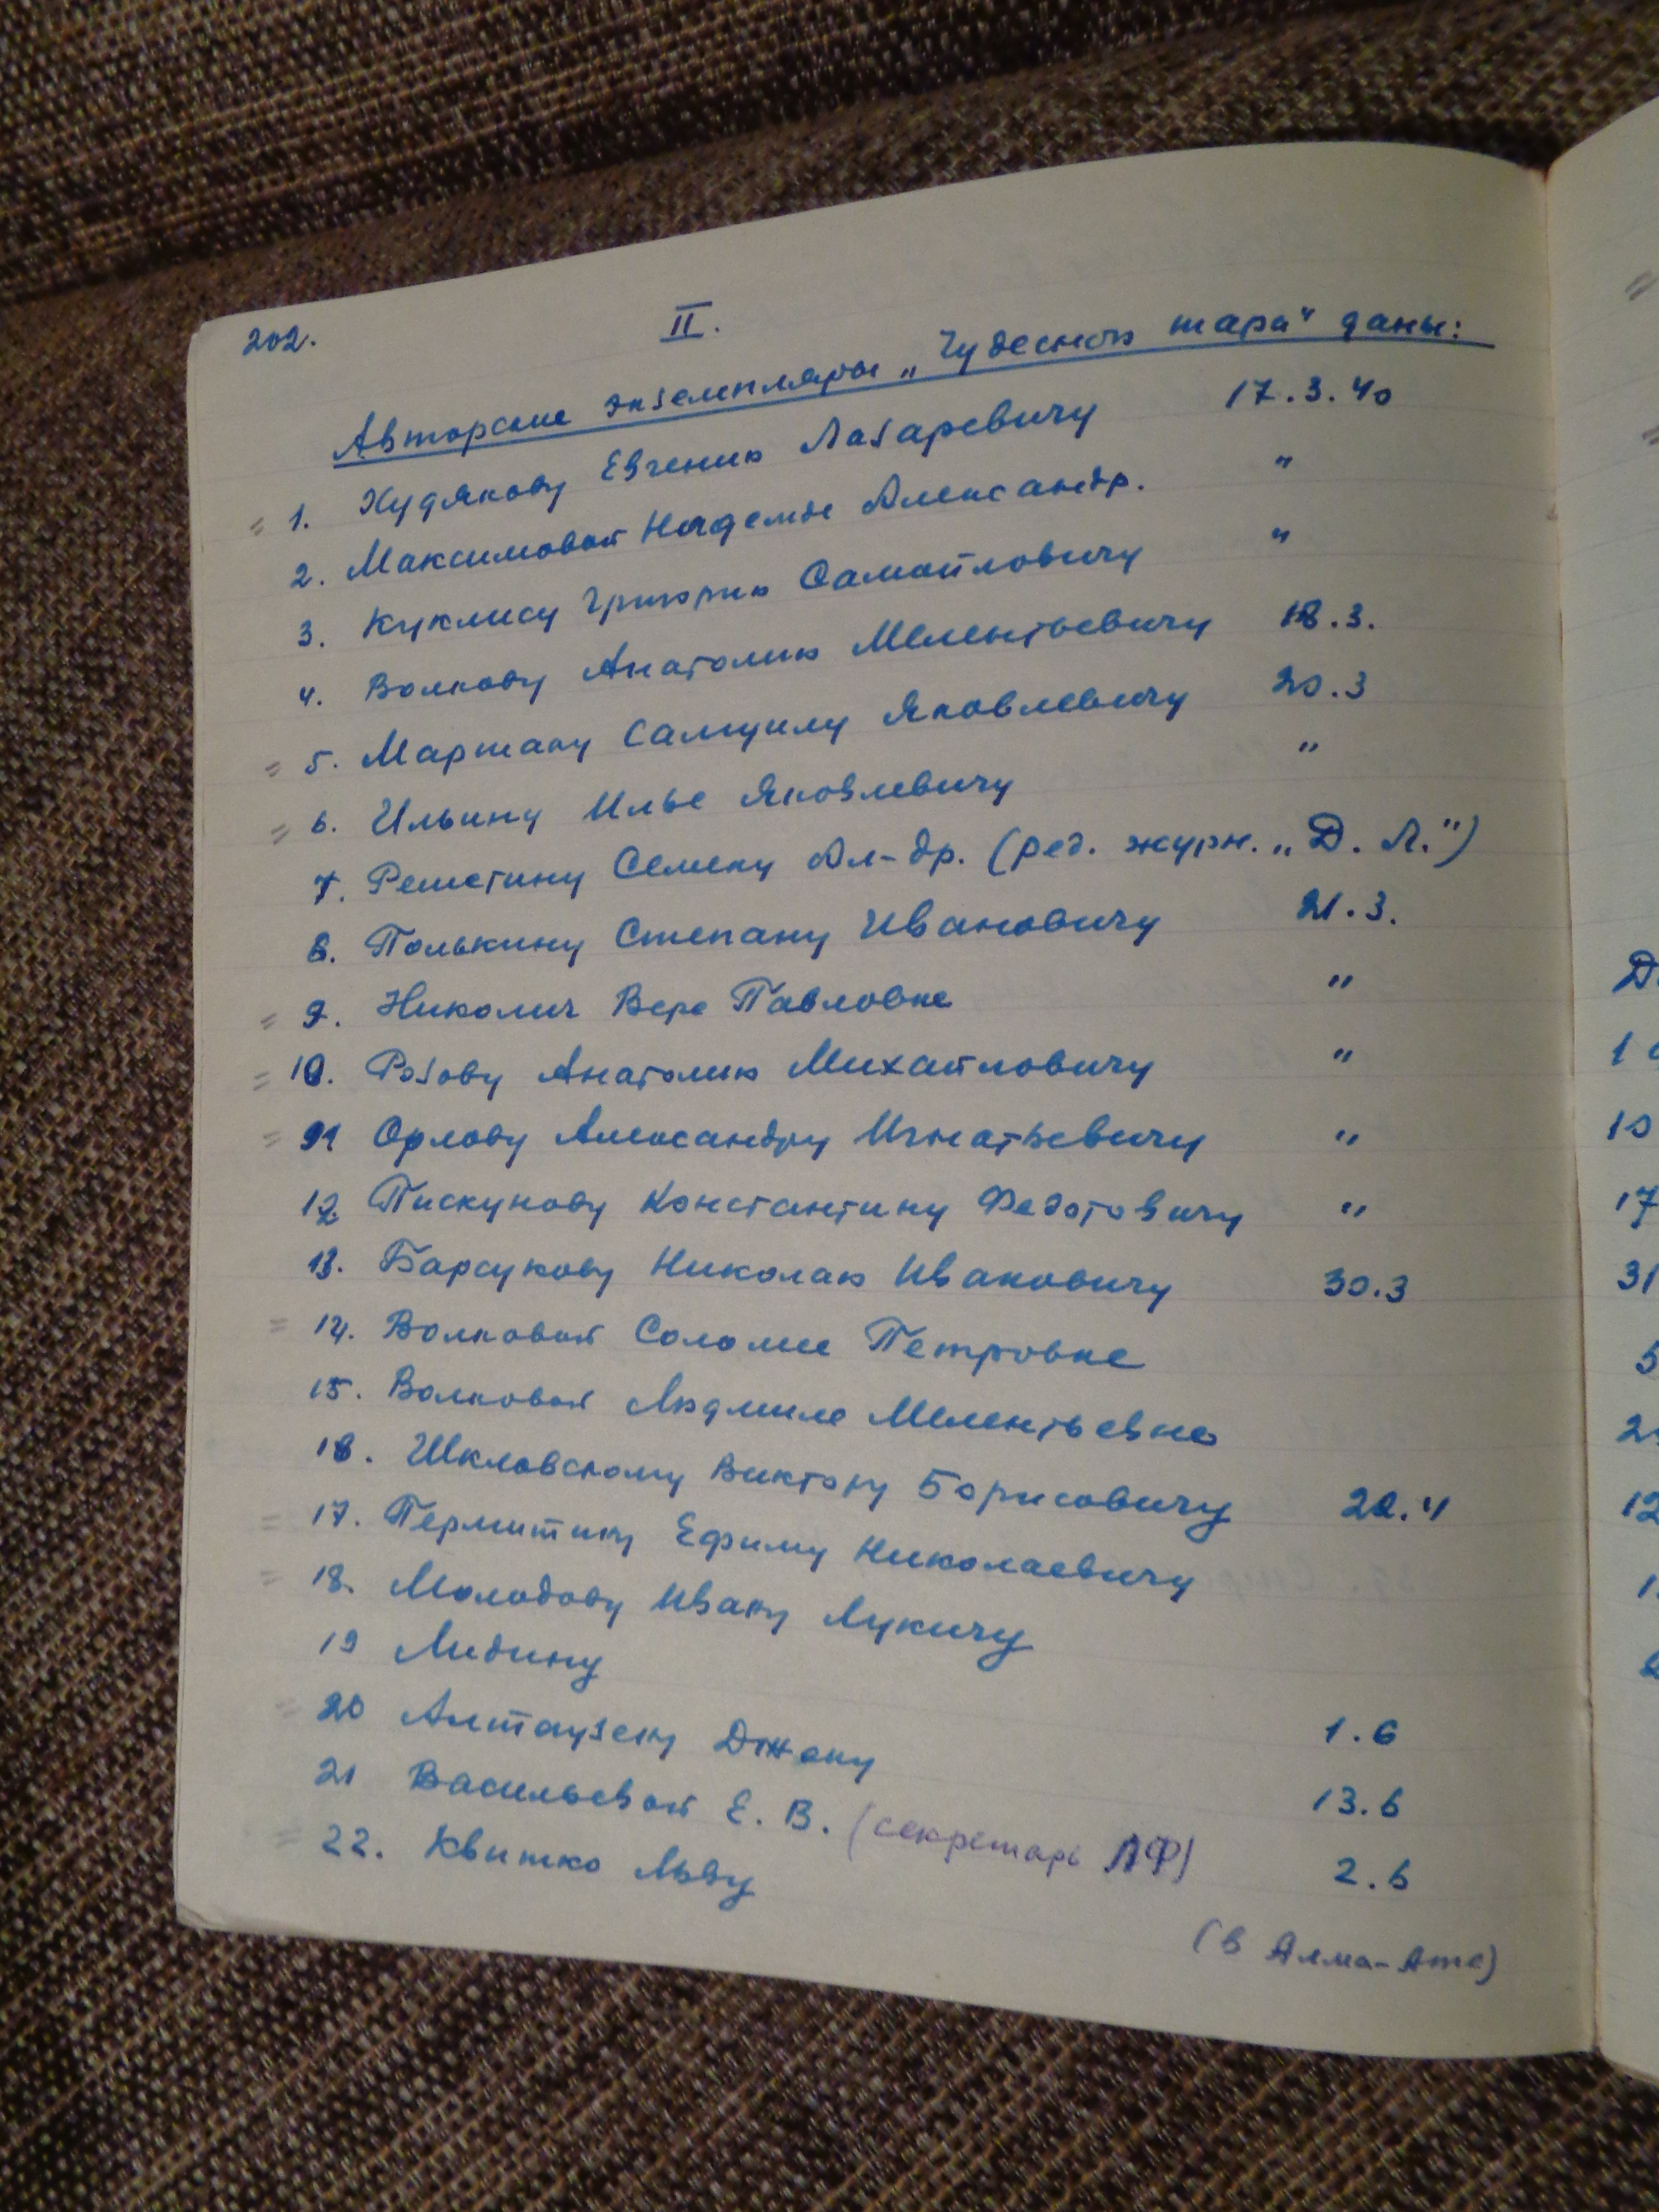 202.
II.
Авторские экземпляры „Чудесного шара" даны:
1. Худякову Евгению Лазаревичу 17.3.40
2. Максимовой Надежде Александр. "
3. Куклису Григорию Самойловичу "
4. Волкову Анатолию Мелентьевичу 18.3.
5. Маршаку Самуилу Яковлевичу 20.3
6. Ильину Илье Яковлевичу "
7. Решетину Семену Ал-др. (ред. журн. „Д. Л.")
8. Полькину Степану Ивановичу 21.3.
9. Николич Вере Павловне "
10. Розову Анатолию Михайловичу "
11 Орлову Александру Игнатьевичу "
12 Пискунову Константину Федотовичу "
13. Барсукову Николаю Ивановичу 30.3
14. Волковой Соломее Петровне
15. Волковой Людмиле Мелентьевне
16. Шкловскому Виктору Борисовичу 20.4
17. Пермитину Ефиму Николаевичу
18. Молодову Ивану Лукичу
19 Лидину
20 Алтаузену Джеку 1.6
21 Васильевой Е. В. (секретарь ЛФ) 13.6
22. Квитко Льву 2.6
(в Алма-Ате)